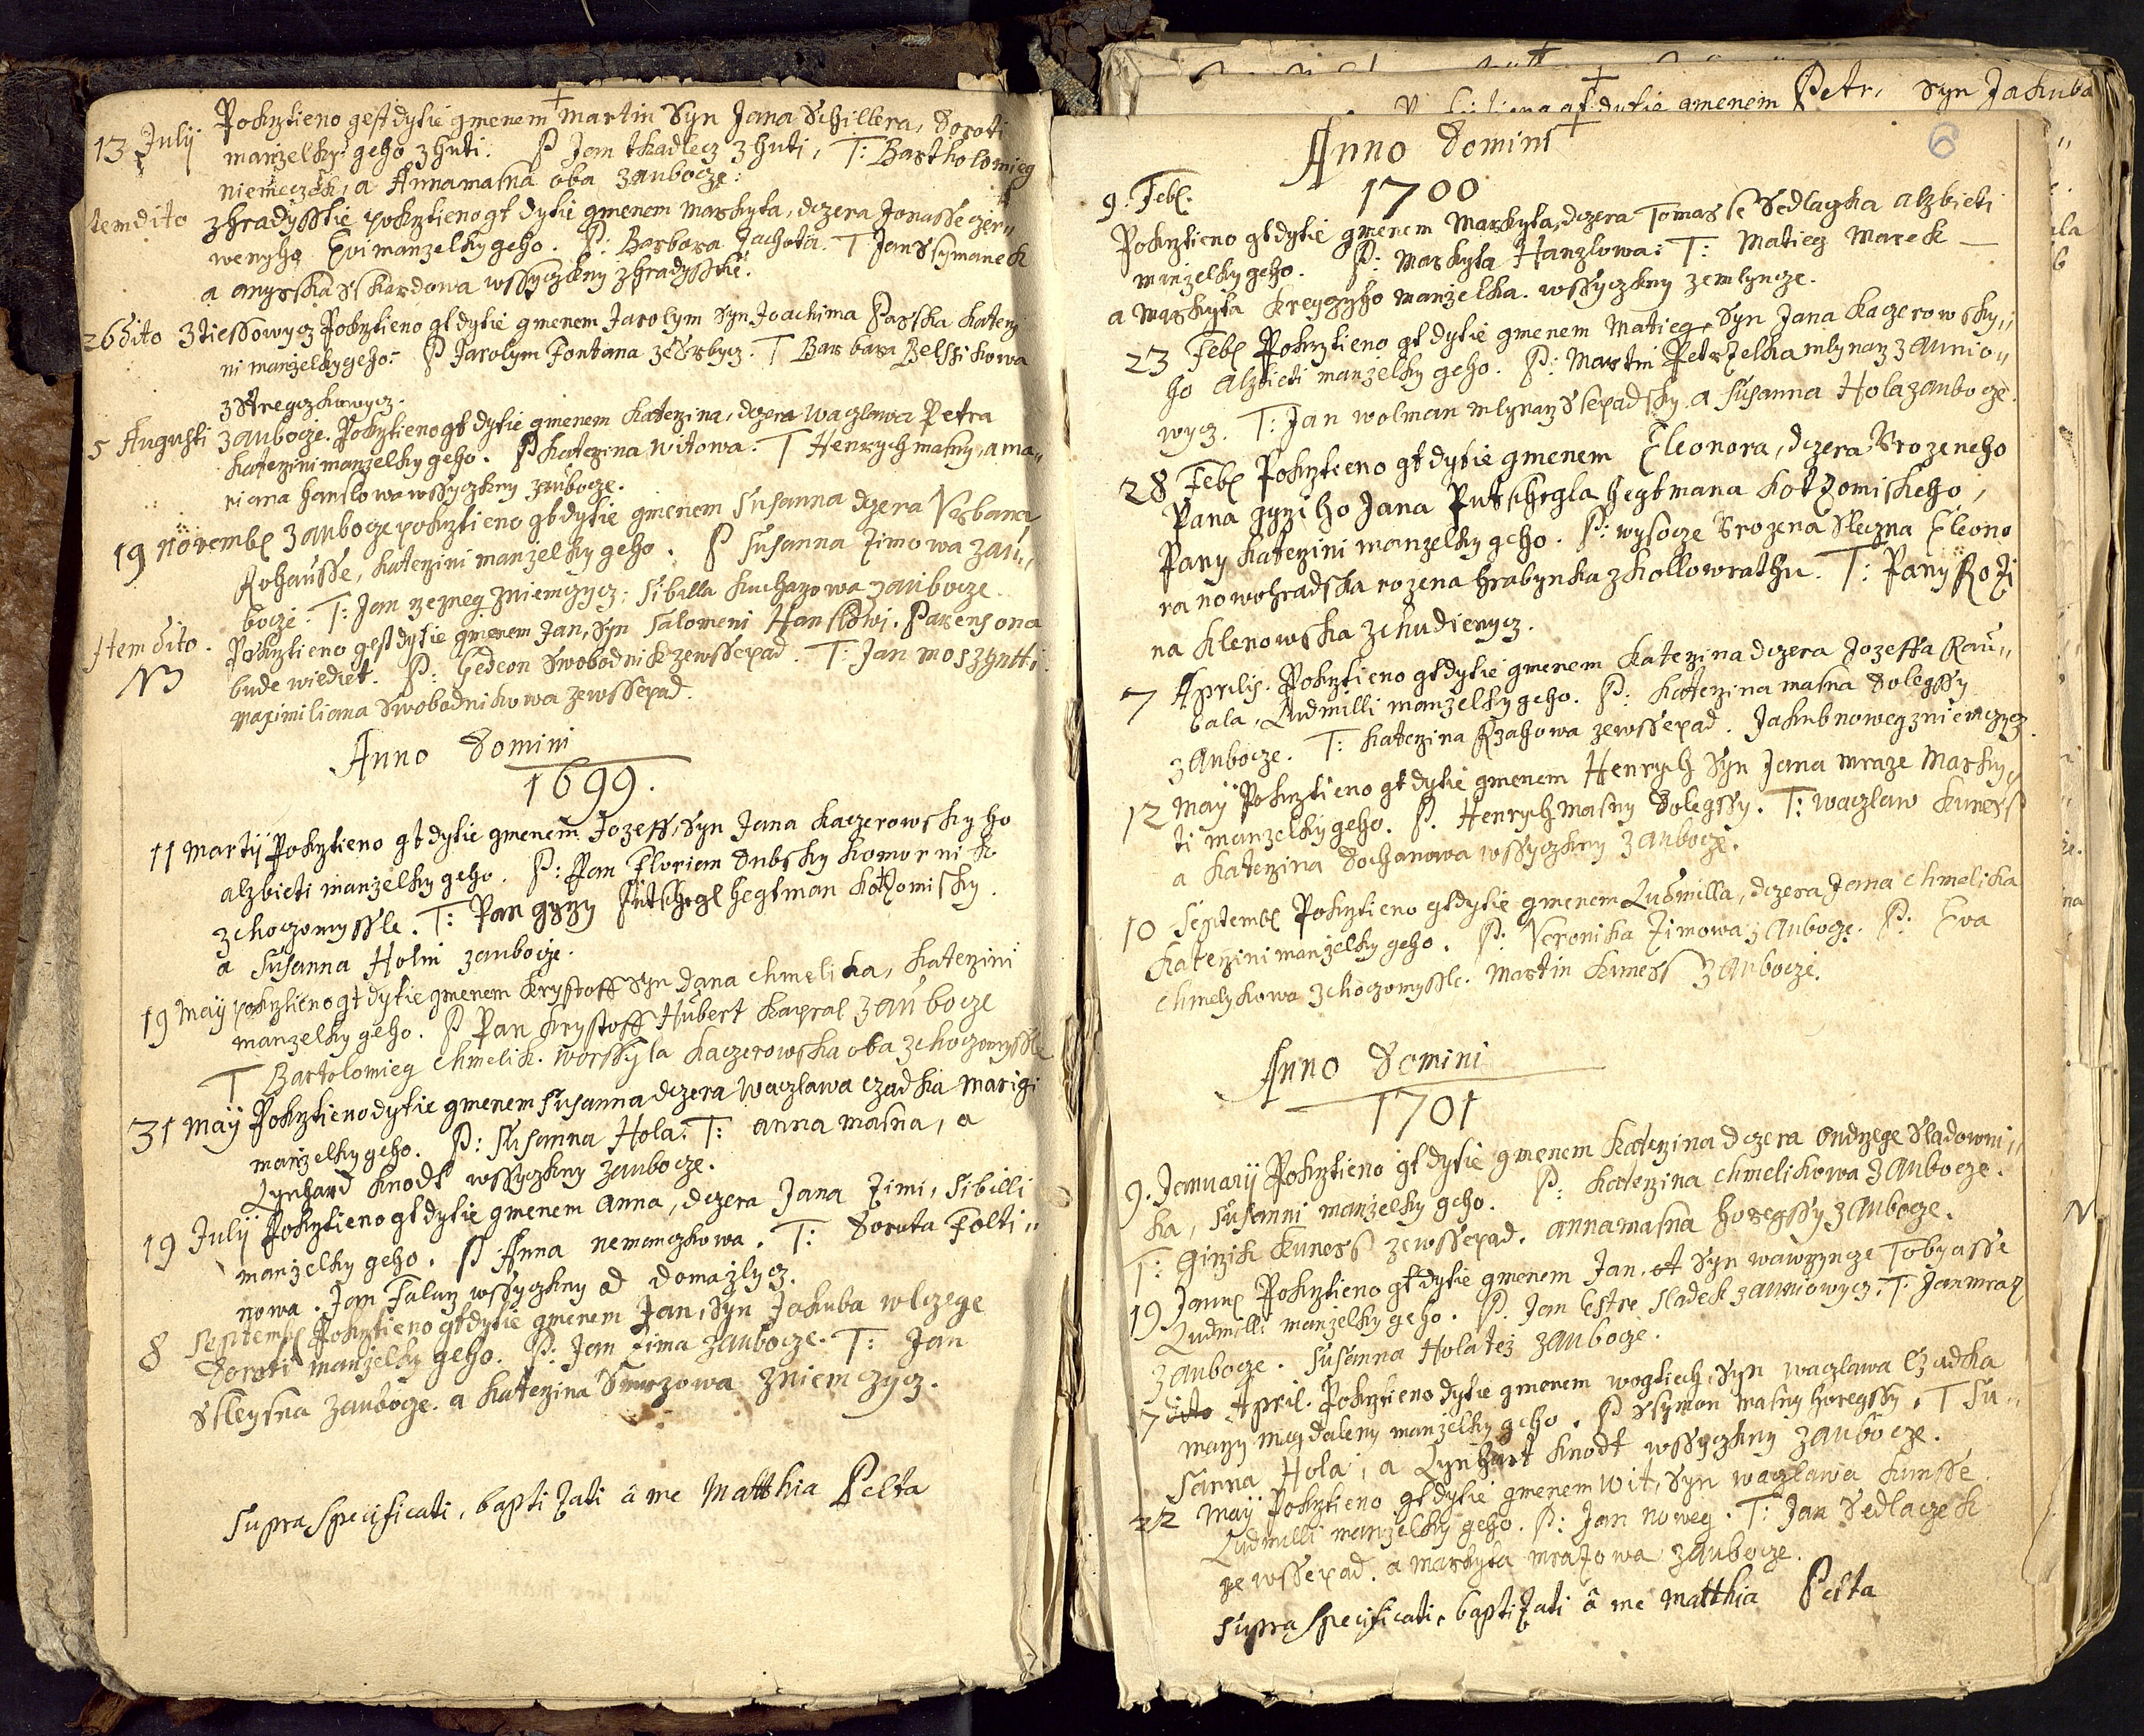 13 Julij Pokrztieno gest dytie gmenem Martin Syn Jana Schillera, Doroti
manzelky geho z huti. P Jan tkadlecz z huti, T: Bartholomieg
niemeczek, a Anna masna oba z aubocze:
Item dito z hradysstie pokrztieno gt dytie gmenem Markyta, dczera Jonasse czer„
weny ho Evi manzelky geho. P: Barbora Jachota. T Jan Ssymanek
a anyzska Sskardowa wssyczkny z hradysstie.
26 dito z tiessowycz Pokrztieno gt dytie gmenem Jarolym Syn Joachima Passka Katerzi
ni manzelky geho. P Jarolym Fontana T Barbara Belssikowa
z Stregczkowycz.
5 Augusti z aubocze. Pokrztieno gt dytie gmenem Katerzina, dczera Waczlawa Petra
Katerzini manzelky geho. P Katerzina Witowa. T Henrych masny, a ma„
riana hanslowa wssyczkny z aubocze.
19 Novemb z aubocze pokrztieno gt dytie gmenem Susanna dczera Vrbana
Rohausse, Katerzini manzelky geho. P Susanna Zimowa z au„
bocze. T: Jan z niemczycz: Sibilla Kucharzowa z aubocze.
Item dito. Pokrztieno gest dytie gmenem Jan, Syn Salomeni Hanslowi. Parens ona
NB bude wiediet. P: Gedeon Swobodnik ze wssepad. T: Jan
Maximiliana Swobodnikowa ze wssepad.
Anno Domini
1699.
11 Martij Pokrztieno gt dytie gmenem Jozeff, Syn Jana Kaczerowsky ho
alzbieti manzelky geho. P: Pan Florian Dubsky komornik
z choczomyssle. T: Pan gyrzy Putschogl hegtman
a Susanna Holin z aubocze.
19 Maij pokrztieno gt dytie gmenem Krystoff Syn Jana Chmelika, Katerzini
manzelky geho. P Pan Krystoff Hubert kapral z aubocze
T Bartolomieg Chmelik. Worssyla Kaczerowska oba z choczomyssle
31 Maij Pokrztieno dytie gmenem Susanna dczera Waczlawa czadka Marigi
manzelky geho. P: Susanna Hola. T: anna masna, a
Lynhard Knodt wssyczkny z aubocze.
19 Julij Pokrztieno gt dytie gmenem Anna, dczera Jana Zimi, Sibilli
manzelky geho. P Anna nemeczkowa. T: Dorota Folti„
nowa. Jan Falur wssyczkny od Domazlycz.
8 Septemb Pokrztieno gt dytie gmenem Jan, Syn Jakuba wlczege
Doroti manzelky geho. P: Jan Zima z aubocze. T: Jan
Ssleysna z aubocze. a Katerzina z niemczycz.
Supra specificati, baptizati â me Matthia Pelta
Petr, Syn Jakuba
6
Anno Domini
1700
9. Feb.
Pokrztieno gt dytie gmenem Markyta, dczera Tomasse Sedlagka alzbieti
manzelky geho. P: Markyta Hanzlowa: T: Matieg Marek
a Markyta Kreyczyho manzelka. wssyczkny ze mlyncze.
23 Feb Pokrztieno gt dytie gmenem Matieg, Syn Jana Kaczerowsky„
ho alzbieti manzelky geho. P: Martin Petrzelka mlynarz z aunio„
wycz. T: Jan Wolman mlynarz Ssepadsky. a Susanna Hola z aubocze.
28 Feb Pokrztieno gt dytie gmenem Eleonora, dczera Vrozeneho
Pana gyrziho Jana Putschogla hegtmana
Pany Katerzini manzelky geho. P: wysocze Vrozena Sleczna Eleono
ra nowohradska rozena hrabynka z Kollowrathu. T: Pany Rozi
na Klenowska z chudienycz.
7 Aprilis. Pokrztieno gt dytie gmenem Katerzina dczera Jozeffa Kau„
bala, Ludmilli manzelky geho. P: Katerzina masna Dolegssy
z aubocze. T: Katerzina ze wssepad. Jakub noweg z niemczycz.
12 Maij Pokrztieno gt dytie gmenem Henrych Syn Jana mraze Marky„
ti manzelky geho. P. Henrych masny Dolegssy. T: Waczlaw Kuness
a Katerzina Dochanowa wssyczkny z aubocze.
10 Septemb Pokrztieno gt dytie gmenem Ludmilla, dczera Jana Chmelika
Katerzini manzelky geho. P: Veronika Zimowa z aubocze. P: Eva
Chmelykowa z choczomyssle. Martin Kuness z aubocze.
Anno Domini
1701
9. Januarij Pokrztieno gt dytie gmenem Katerzina dczera Ondrzege Sladowni„
ka, Susanni manzelky geho. P: Katerzina Chmelikowa z aubocze.
T: Girzik Kuness ze wssepad. anna masna horegssy z aubocze.
19 Janu Pokrztieno gt dytie gmenem Jan, Syn Wawrzyncze Tobyasse
Ludmilli manzelky geho. P. Jan Sladek z auniowycz. T: Jan mraz
z aubocze. Susanna Hola tez z aubocze.
7 dito April. Pokrztieno dytie gmenem Wogtiech, Syn Waczlawa Czadka
Marzy Magdaleny manzelky geho. P Ssymon Masny horegssy. T Su„
sanna Hola, a Lynhart Knodt wssyczkny z aubocze.
22 Maij Pokrztieno gt dytie gmenem Wit, Syn Waczlawa Kunsse
Ludmilli manzelky geho. P: Jan Noweg. T: Jan Sedlaczek
ze wssepad. a Markyta Mrazowa z aubocze.
Supra specificati, baptizati â me Matthia Pelta